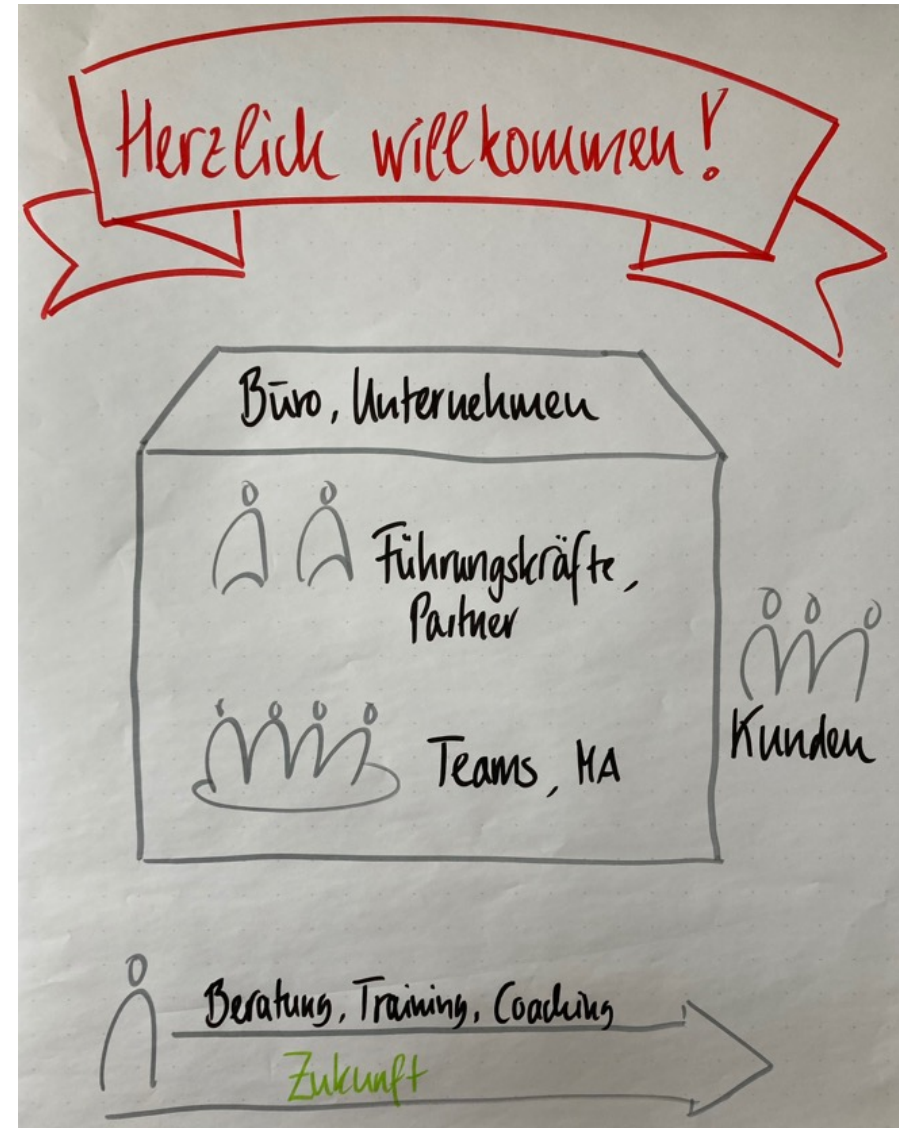 Herzlich willkommen!
Büro, Unternehmen
Führungskräfte,
Partner
Teams, MA
Kunden
Beratung, Training, Coaching
Zukunft